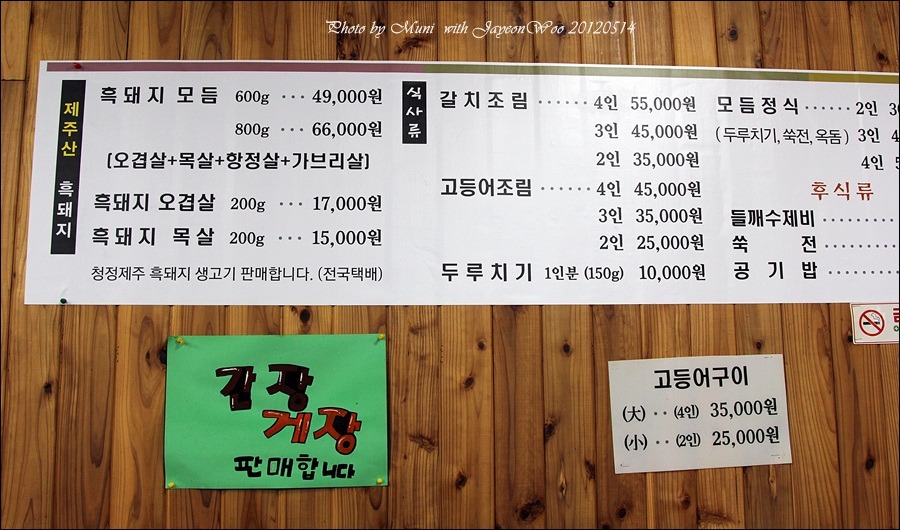 Photo by Muni with JayeonWoo 20120514
제주산 흑돼지
흑돼지 모듬 600g ··· 49,000원
800g ··· 66,000원
[오겹살+목살+항정살+가브리살]
흑돼지 오겹살 200g ··· 17,000원
흑돼지 목살 200g ··· 15,000원
청정제주 흑돼지 생고기 판매합니다. (전국택배)
식사류
갈치조림 ······ 4인 55,000원
3인 45,000원
2인 35,000원
고등어조림 ······ 4인 45,000원
3인 35,000원
2인 25,000원
두루치기 1인분 (150g) 10,000원
모듬정식 ······ 2인
(두루치기, 쑥전, 옥돔) 3인
4인
후식류
들깨수제비
쑥전
공기밥
간장
게장
판매합니다
고등어구이
(大) ·· (4인) 35,000원
(小) ·· (2인) 25,000원